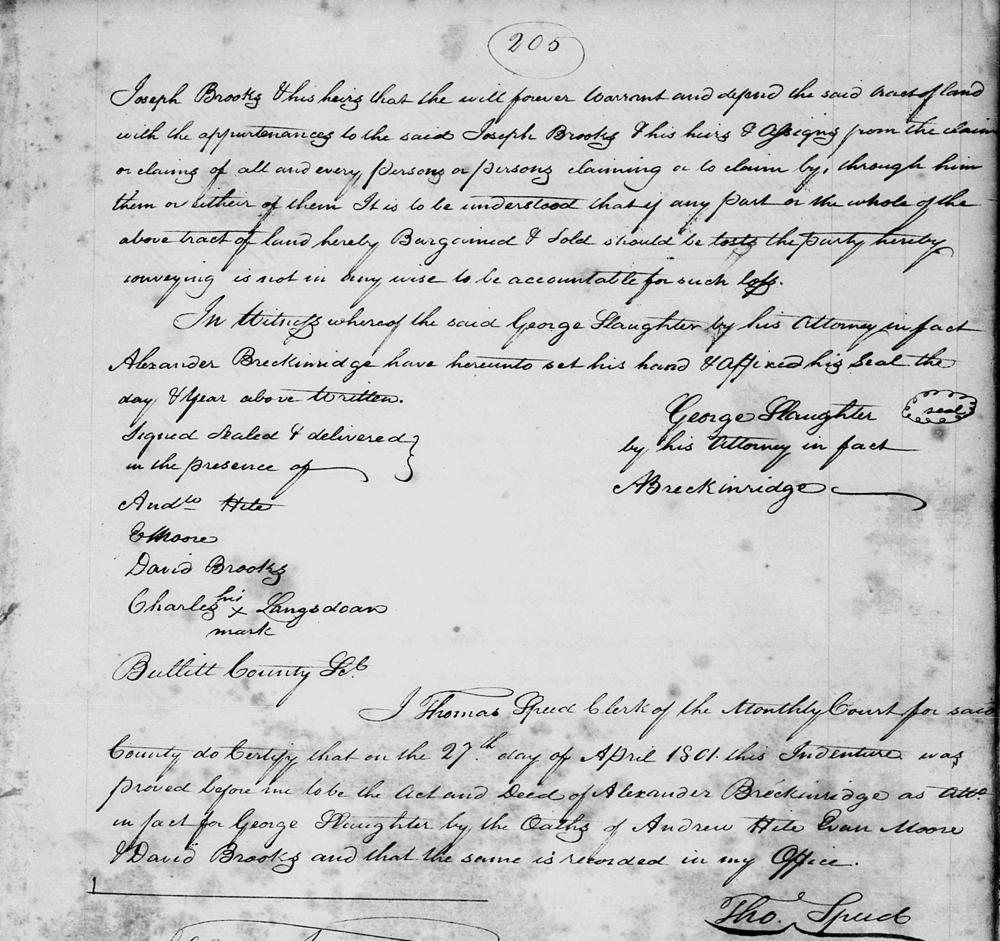 205
Joseph Brooks & his heirs that the will forever warrant and defend the said tract of land
with the appurtenances to the said Joseph Brooks & his heirs & Assigns from the claim
or claims of all and every persons or persons claiming or to claim by, through him
them or either of them It is to be understood that if any part or the whole of the
above tract of land hereby Bargained & Sold should be the party hereby
conveying is not in any wise to be accountable for such Loss.
In Witness whereof the said George Slaughter by his Attorney in fact
Alexander Breckinridge have hereunto set his hand & Affixed his Seal the
day & Year above Written.
George Slaughter seal
Signed Sealed & delivered
by his Attorney in fact
in the presence of
ABreckinridge
Andw Hite
EMoore
David Brooks
Charles his x Langsdoan
mark
Bullitt County Sct
I Thomas Speed Clerk of the Monthly Court for said
County do Certify that on the 27th day of April 1801 this Indenture was
proved before me to be the Act and Deed of Alexander Breckinridge as Atto.
in fact for George Slaughter by the Oaths of Andrew Hite Evan Moore
& David Brooks and that the same is recorded in my Office.
Tho. Speed